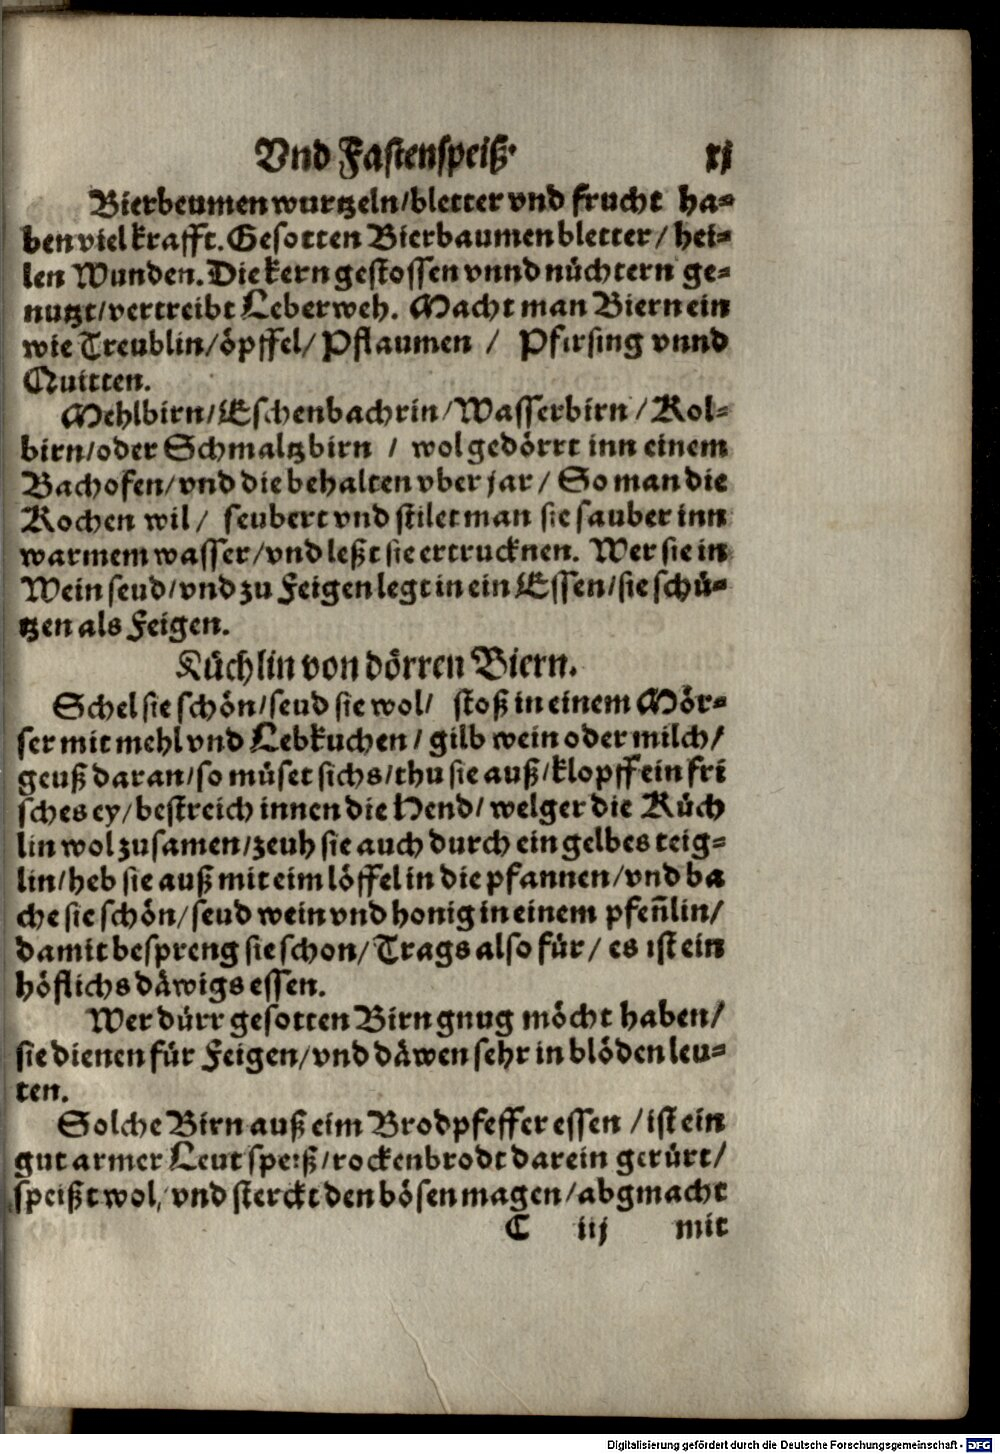 Vnd Fastenspeiß. xj
Bierbeumen wurtzeln/bletter vnd frucht ha-
ben viel krafft. Gesotten Bierbaumen bletter/ hei-
len Wunden. Die kern gestossen vnnd nüchtern ge-
nutzt/vertreibt Leberweh. Macht man Biern ein
wie Treublin/öpffel/ Pflaumen / Pfirsing vnnd
Quitten.
Mehlbirn/Eschenbachrin/Wasserbirn/Rol-
birn/oder Schmaltzbirn / wol gedörrt inn einem
Bachofen/vnd die behalten vber jar/ So man die
Kochen wil/ seubert vnd stilet man sie sauber inn
warmem wasser/vnd leßt sie ertrucknen. Wer sie in
Wein seud/vnd zu Feigen legt in ein Essen/sie schü-
tzen als Feigen.
Küchlin von dörren Biern.
Schel sie schön/seud sie wol/ stoß in einem Mör-
ser mit mehl vnd Lebkuchen/gilb wein oder milch/
geuß daran/so müset sichs/thu sie auß/klopff ein fri
sches ey/bestreich innen die Hend/ welger die Küch
lin wol zusamen/zeuh sie auch durch ein gelbes teig-
lin/heb sie auß mit eim löffel in die pfannen/vnd ba
che sie schön/seud wein vnd honig in einem pfeñlin/
damit bespreng sie schon/ Trags also für/ es ist ein
höflichs däwigs essen.
Wer dürr gesotten Birn gnug möcht haben/
sie dienen für Feigen/vnd däwen sehr in blöden leu-
ten.
Solche Birn auß eim Brodpfeffer essen /ist ein
gut armer Leut speiß/rockenbrodt darein gerürt/
speißt wol/ vnd sterckt den bösen magen/abgmacht
C iij mit
Digitalisierung gefördert durch die Deutsche Forschungsgemeinschaft - DFG